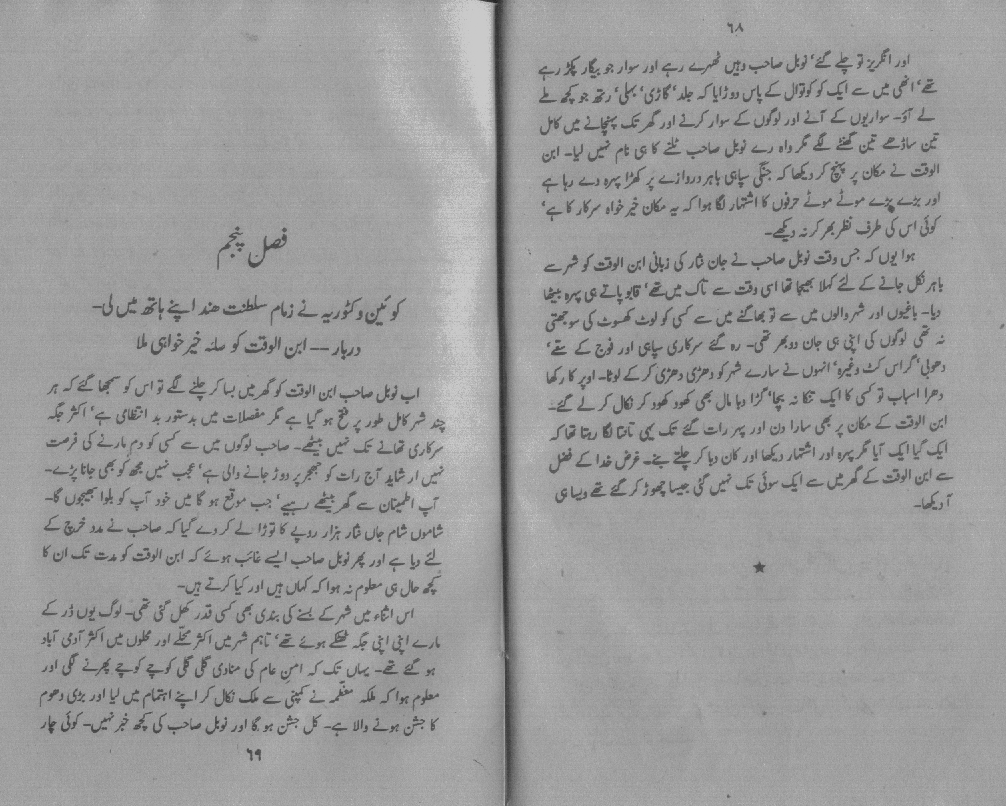 ۶۸
اور انگریز تو چلے گئے‘ نوبل صاحب وہیں ٹھہرے رہے اور سوار جو بیگار پکڑ رہے
تھے‘ انھی میں سے ایک کو کوتوال کے پاس دوڑایا کہ جلد‘ گاڑی‘ بہلی‘ رتھ جو کچھ ملے
لے آؤ۔ سواریوں کے آنے اور لوگوں کے سوار کرنے اور گھر تک پہنچانے میں کامل
تین ساڑھے تین گھنٹے لگے مگر واہ رے نوبل صاحب ٹلنے کا ہی نام نہیں لیا۔ ابن
الوقت نے مکان پر پہنچ کر دیکھا کہ جنگی سپاہی باہر دروازے پر کھڑا پہرہ دے رہا ہے
اور بڑے بڑے موٹے موٹے حرفوں کا اشتہار لگا ہوا کہ یہ مکان خیر خواہ سرکار کا ہے‘
کوئی اس کی طرف نظر بھر کر نہ دیکھے۔
ہوا یوں کہ جس وقت نوبل صاحب نے جان نثار کی زبانی ابن الوقت کو شہر سے
باہر نکل جانے کے لئے کہلا بھیجا تھا اسی وقت سے تاک میں تھے‘ قابو پاتے ہی پہرہ بیٹھا
دیا۔ باغیوں اور شہر والوں میں سے تو بھاگنے میں سے کسی کو لوٹ کھسوٹ کی سوجھتی
نہ تھی لوگوں کی اپنی ہی جان دوبھر تھی۔ رہ گئے سرکاری سپاہی اور فوج کے سقے‘
دھوبی‘ گراس کٹ وغیرہ‘ انہوں نے سارے شہر کو دھڑی دھڑی کر کے لوٹا۔ اوپر کا رکھا
دھرا اسباب تو کسی کا ایک تنکا نہ بچا‘ گڑا دبا مال بھی کھود کھود کر نکال کر لے گئے۔
ابن الوقت کے مکان پر بھی سارا دن اور پہر رات گئے تک یہی تانتا لگا رہتا تھا کہ
ایک گیا ایک آیا مگر پہرہ اور اشتہار دیکھا اور کان دبا کر چلتے بنے۔ غرض خدا کے فضل
سے ابن الوقت کے گھر میں سے ایک سوئی تک نہیں گئی جیسا چھوڑ کر گئے تھے ویسا ہی
آ دیکھا۔
★
فصل پنجم
کوئین وکٹوریہ نے زمام سلطنت ھند اپنے ہاتھ میں لی۔
دربار — ابن الوقت کو صلہ خیر خواہی ملا
اب نوبل صاحب ابن الوقت کو گھر میں بسا کر چلنے لگے تو اس کو سمجھا گئے کہ ہر
چند شہر کامل طور پر فتح ہو گیا ہے مگر مفصلات میں بدستور بد انتظامی ہے‘ اکثر جگہ
سرکاری تھانے تک نہیں بیٹھے۔ صاحب لوگوں میں سے کسی کو دم مارنے کی فرصت
نہیں اور شاید آج رات کو جھجر پر دوڑ جانے والی ہے‘ عجب نہیں مجھ کو بھی جانا پڑے۔
آپ اطمینان سے گھر بیٹھے رہیے‘ جب موقع ہو گا میں خود آپ کو بلوا بھیجوں گا۔
شاموں شام جاں نثار ہزار روپے کا توڑا لے کر دے گیا کہ صاحب نے مدد خرچ کے
لئے دیا ہے اور پھر نوبل صاحب ایسے غائب ہوئے کہ ابن الوقت کو مدت تک ان کا
کچھ حال ہی معلوم نہ ہوا کہ کہاں ہیں اور کیا کرتے ہیں۔
اس اثناء میں شہر کے بسنے کی بندی بھی کسی قدر کھل گئی تھی۔ لوگ یوں ڈر کے
مارے اپنی اپنی جگہ ٹھٹکے ہوئے تھے‘ تاہم شہر میں اکثر محلے اور محلوں میں اکثر آدمی آباد
ہو گئے تھے۔ یہاں تک کہ امن عام کی منادی گلی گلی کوچے کوچے پھرنے لگی اور
معلوم ہوا کہ ملکہ معظمہ نے کمپنی سے ملک نکال کر اپنے اہتمام میں لیا اور بڑی دھوم
کا جشن ہونے والا ہے۔ کل جشن ہو گا اور نوبل صاحب کی کچھ خبر نہیں۔ کوئی چار
۶۹